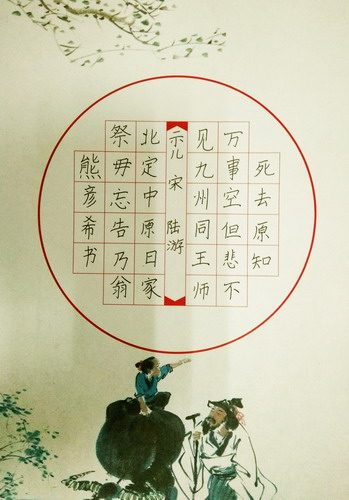 死去原知
万事空但悲不
见九州同王师
示儿 宋 陆游
北定中原日家
祭毋忘告乃翁
熊彦希书